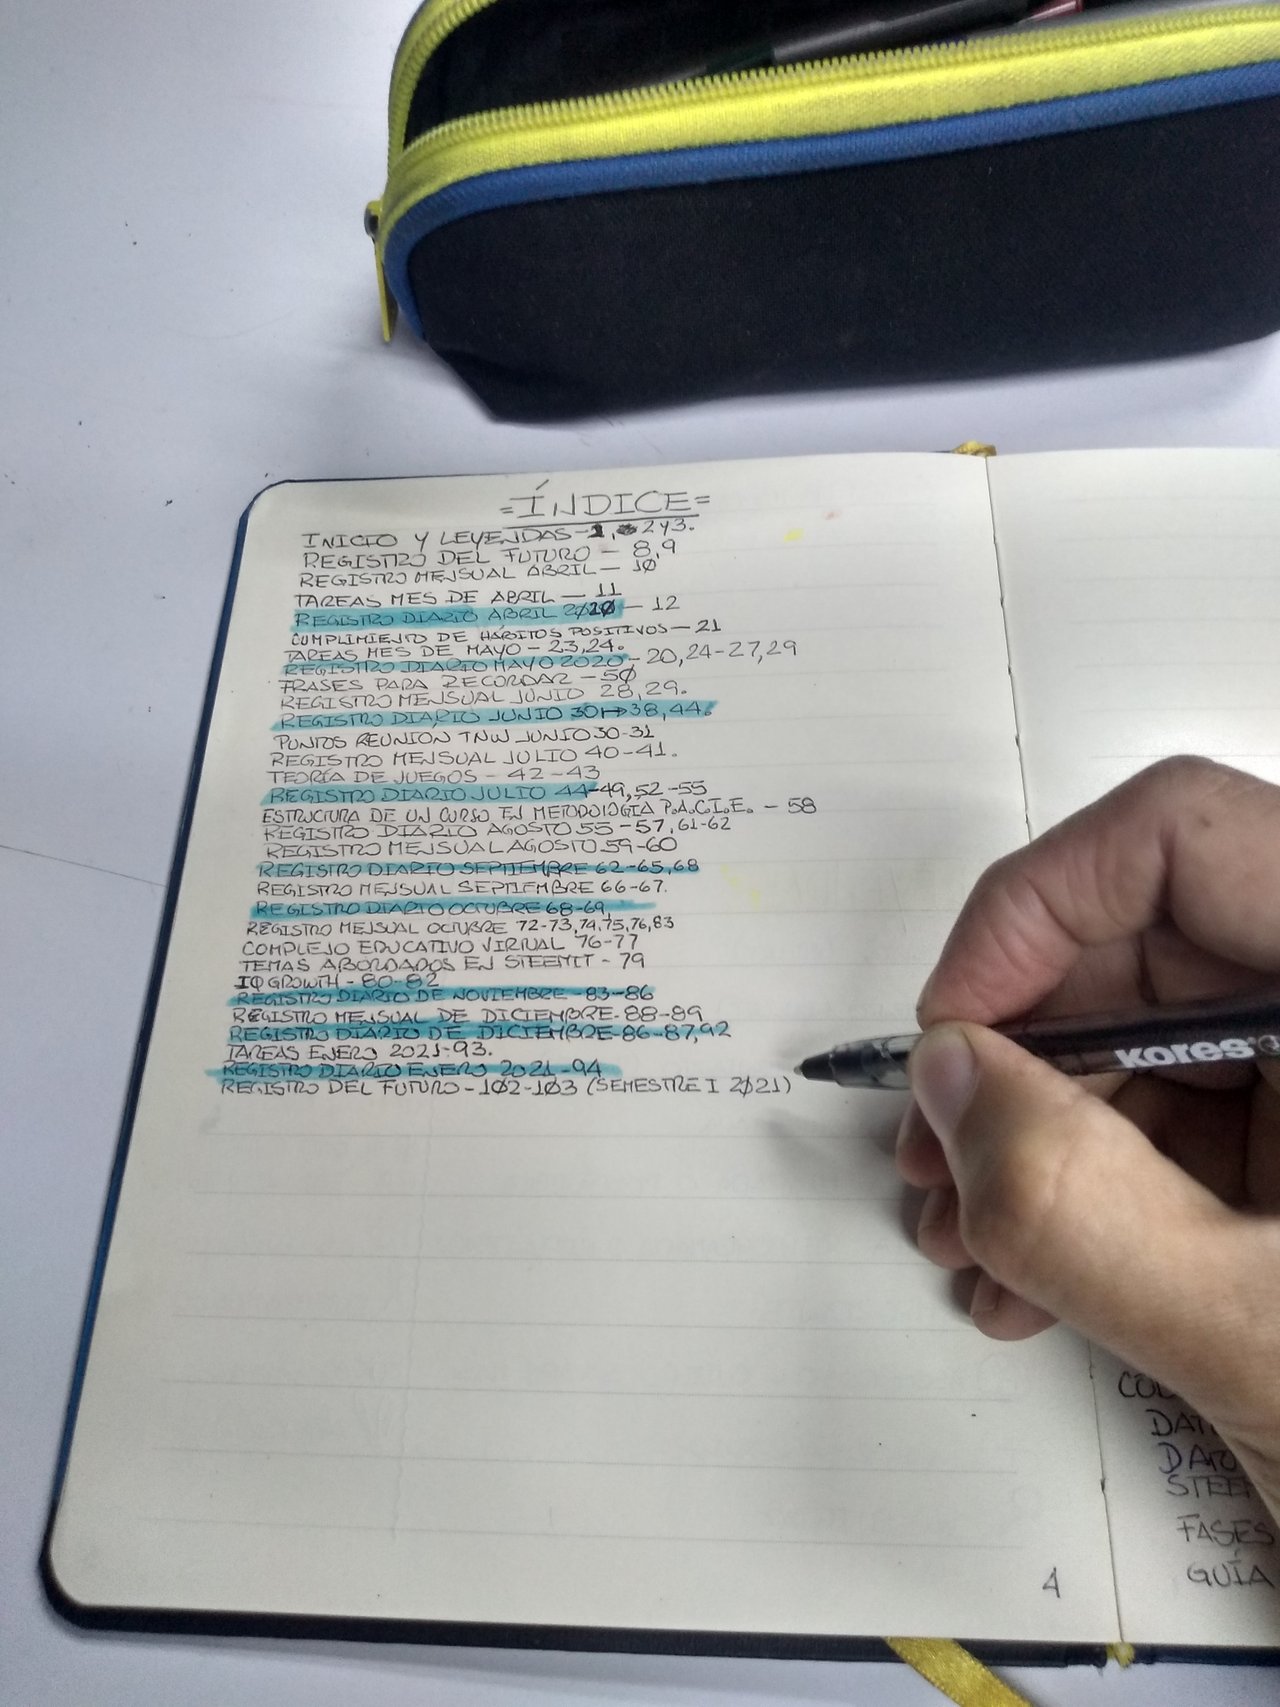 =ÍNDICE=
INICIO Y LEYENDAS-1, 2 y 3.
REGISTRO DEL FUTURO - 8,9
REGISTRO MENSUAL ABRIL - 10
TAREAS MES DE ABRIL - 11
REGISTRO DIARIO ABRIL 2020 - 12
CUMPLIMIENTO DE HÁBITOS POSITIVOS - 21
TAREAS MES DE MAYO - 23,24.
REGISTRO DIARIO MAYO 2020 - 20,24-27,29
FRASES PARA RECORDAR - 50
REGISTRO MENSUAL JUNIO 28,29.
REGISTRO DIARIO JUNIO 30↦38,44.
PUNTOS REUNION TNW JUNIO 30-31
REGISTRO MENSUAL JULIO 40-41.
TEORÍA DE JUEGOS - 42-43
REGISTRO DIARIO JULIO 44-49,52-55
ESTRUCTURA DE UN CURSO EN METODOLOGIA P.A.C.I.E. - 58
REGISTRO DIARIO AGOSTO 55-57,61-62
REGISTRO MENSUAL AGOSTO 59-60
REGISTRO DIARIO SEPTIEMBRE 62-65,68
REGISTRO MENSUAL SEPTIEMBRE 66-67.
REGISTRO DIARIO OCTUBRE 68-69,
REGISTRO MENSUAL OCTUBRE 72-73,74,75,76,83
COMPLEJO EDUCATIVO VIRTUAL 76-77
TEMAS ABORDADOS EN STEEMIT - 79
IQ GROWTH - 80-82
REGISTRO DIARIO DE NOVIEMBRE - 83-86
REGISTRO MENSUAL DE DICIEMBRE - 88-89
REGISTRO DIARIO DE DICIEMBRE - 86-87,92
TAREAS ENERO 2021-93.
REGISTRO DIARIO ENERO 2021-94
REGISTRO DEL FUTURO - 102-103 (SEMESTRE I 2021)
kores
STEE
FASES
GUÍA
4